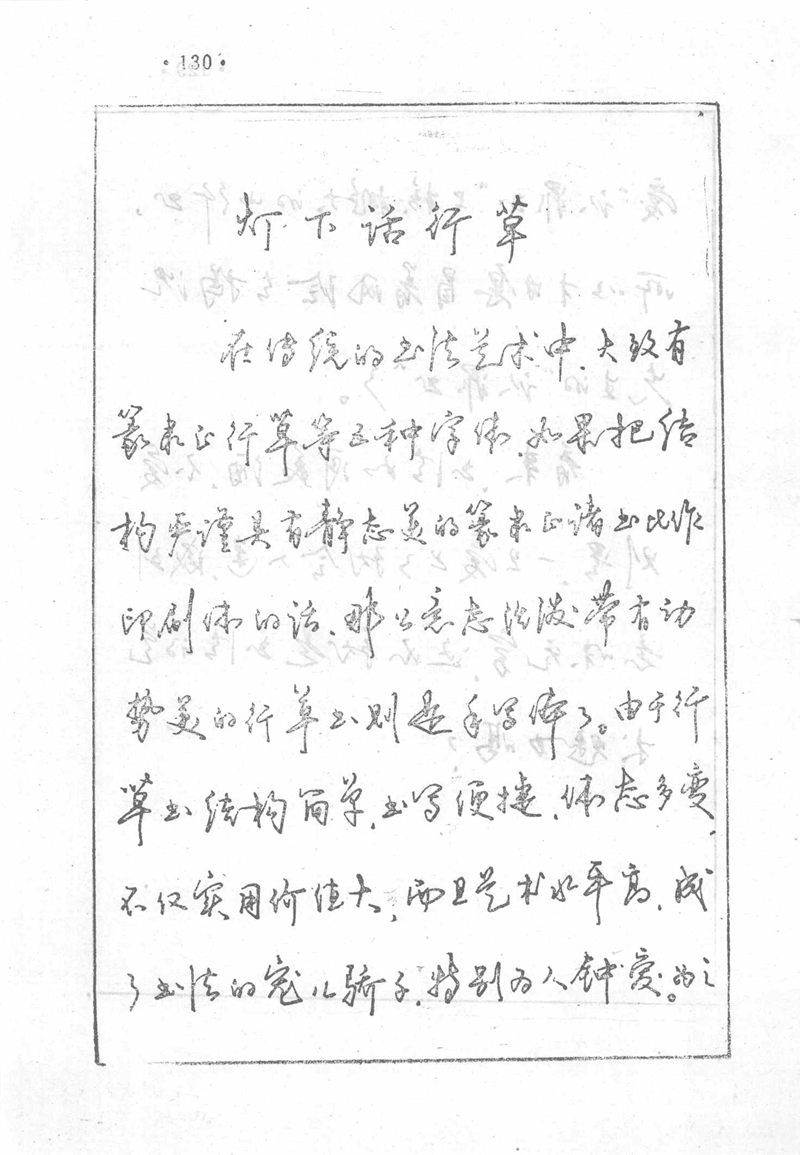 ·130·
灯下话行草
在传统的书法艺术中，大致有
篆隶正行草等五种字体，如果把结
构严谨具有静态美的篆隶正诸书比作
印刷体的话，那么意态活泼带有动
势美的行草书则是手写体了。由于行
草书结构简单，书写便捷，体态多变，
不仅实用价值大，而且艺术水平高，成
了书法的宠儿骄子，特别为人钟爱。为之